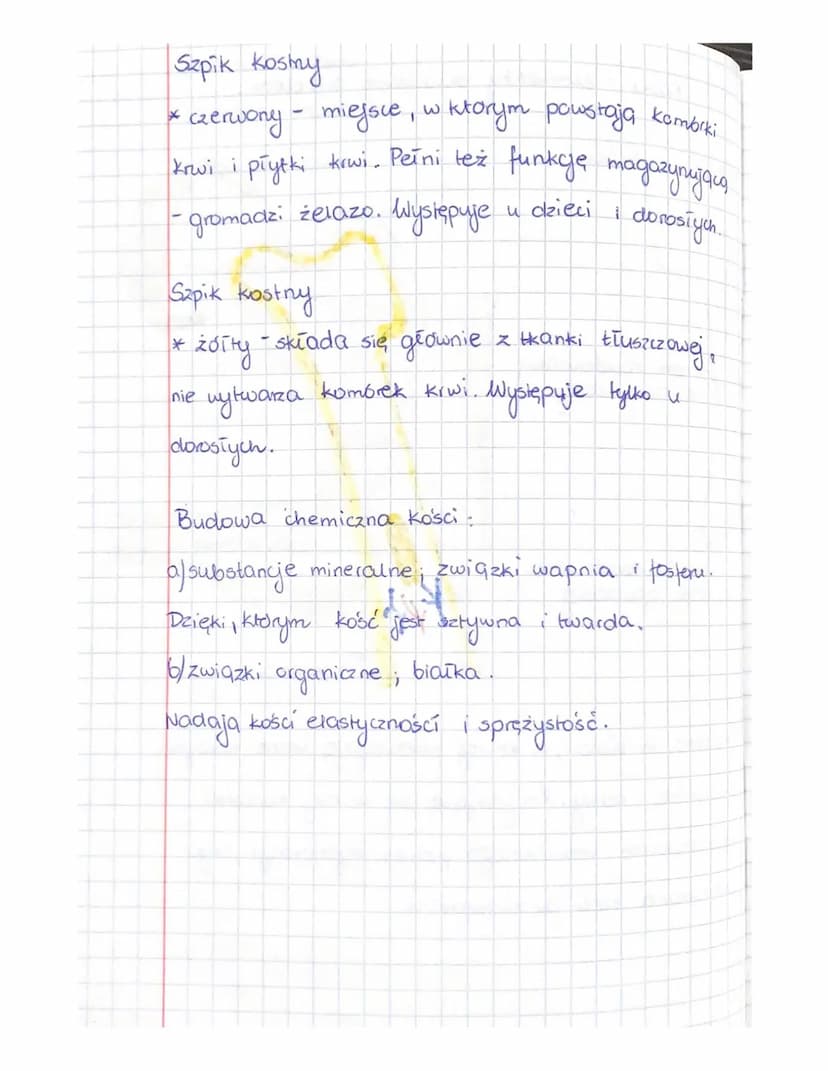 Szpik kostny
* czerwony - miejsce, w którym powstają komórki
krwi i płytki krwi. Pełni też funkcję magazynującą
- gromadzi żelazo. Występuje u dzieci i dorosłych.
Szpik kostny
* żółty - składa się głównie z tkanki tłuszczowej,
nie wytwarza komórek krwi. Występuje tylko u
dorosłych.
Budowa chemiczna kości :
a) substancje mineralne ; związki wapnia i fosforu.
Dzięki, którym kość jest sztywna i twarda.
b) związki organiczne ; białka.
Nadają kości elastyczności i sprężystość.